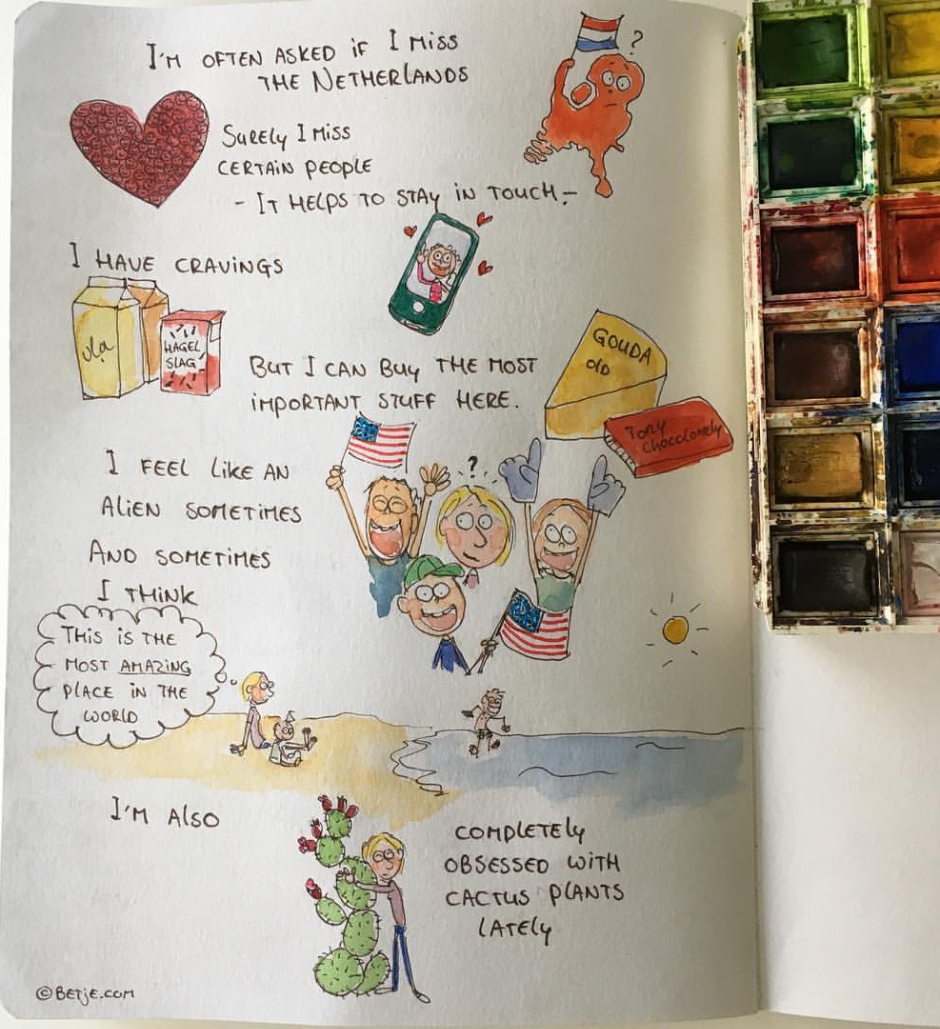 I'm often asked if I miss
the Netherlands
?
Surely I miss
certain people
- It helps to stay in touch -
I have cravings
Vla
HAGEL
SLAG
But I can buy the most
important stuff here.
GOUDA
old
Tony
Chocolonely
I feel like an
alien sometimes
?
And sometimes
I think
This is the
most amazing
place in the
world
I'm also
completely
obsessed with
cactus plants
lately
©Betje.com